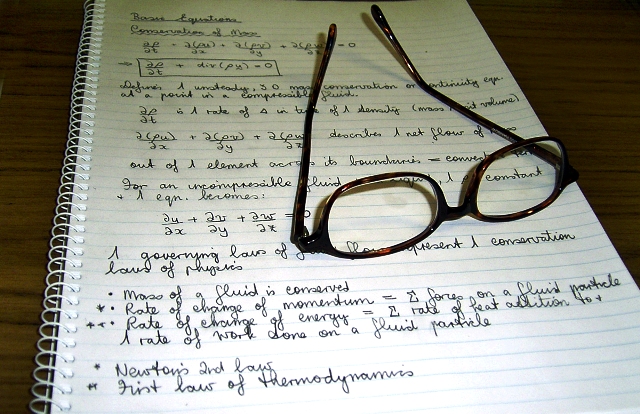 Basic Equations
Conservation of Mass
∂ρ/∂t + ∂(ρu)/∂x + ∂(ρv)/∂y + ∂(ρw)/∂z = 0
⇒ ∂ρ/∂t + div(ρu) = 0
Defines 1 unsteady, 3D mass conservation or continuity eqn.
at a point in a compressible fluid.
∂ρ/∂t is 1 rate of Δ in time of 1 density (mass volume)
∂(ρu)/∂x + ∂(ρv)/∂y + ∂(ρw) describes 1 net flow of mass
out of 1 element across its boundaries =
For an incompressible fluid constant
+ 1 eqn. becomes:
∂u/∂x + ∂v/∂y + ∂w/∂z = 0
1 governing laws of flow represent 1 conservation
laws of physics
· Mass of a fluid is conserved
*· Rate of change of momentum = Σ forces on a fluid particle
**· Rate of change of energy = Σ rate of heat addition to +
1 rate of work done on a fluid particle
* Newton's 2nd law
** First law of thermodynamics